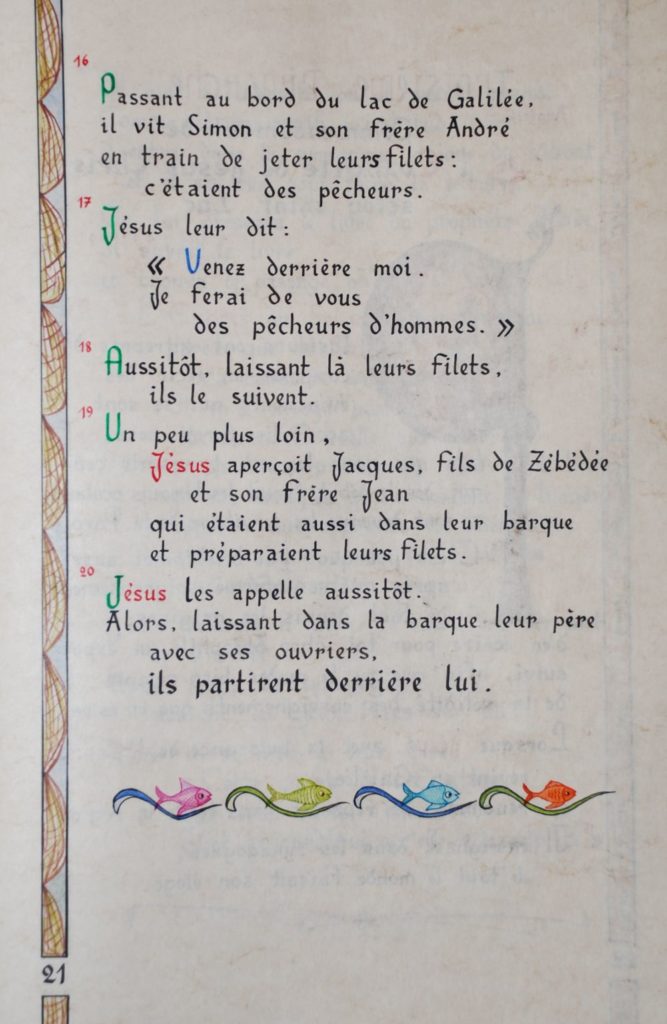 16
Passant au bord du lac de Galilée,
il vit Simon et son frère André
en train de jeter leurs filets :
c'étaient des pêcheurs.
17
Jésus leur dit :
« Venez derrière moi.
Je ferai de vous
des pêcheurs d'hommes. »
18
Aussitôt, laissant là leurs filets,
ils le suivent.
19
Un peu plus loin,
Jésus aperçoit Jacques, fils de Zébédée
et son frère Jean
qui étaient aussi dans leur barque
et préparaient leurs filets.
20
Jésus les appelle aussitôt.
Alors, laissant dans la barque leur père
avec ses ouvriers,
ils partirent derrière lui.
21